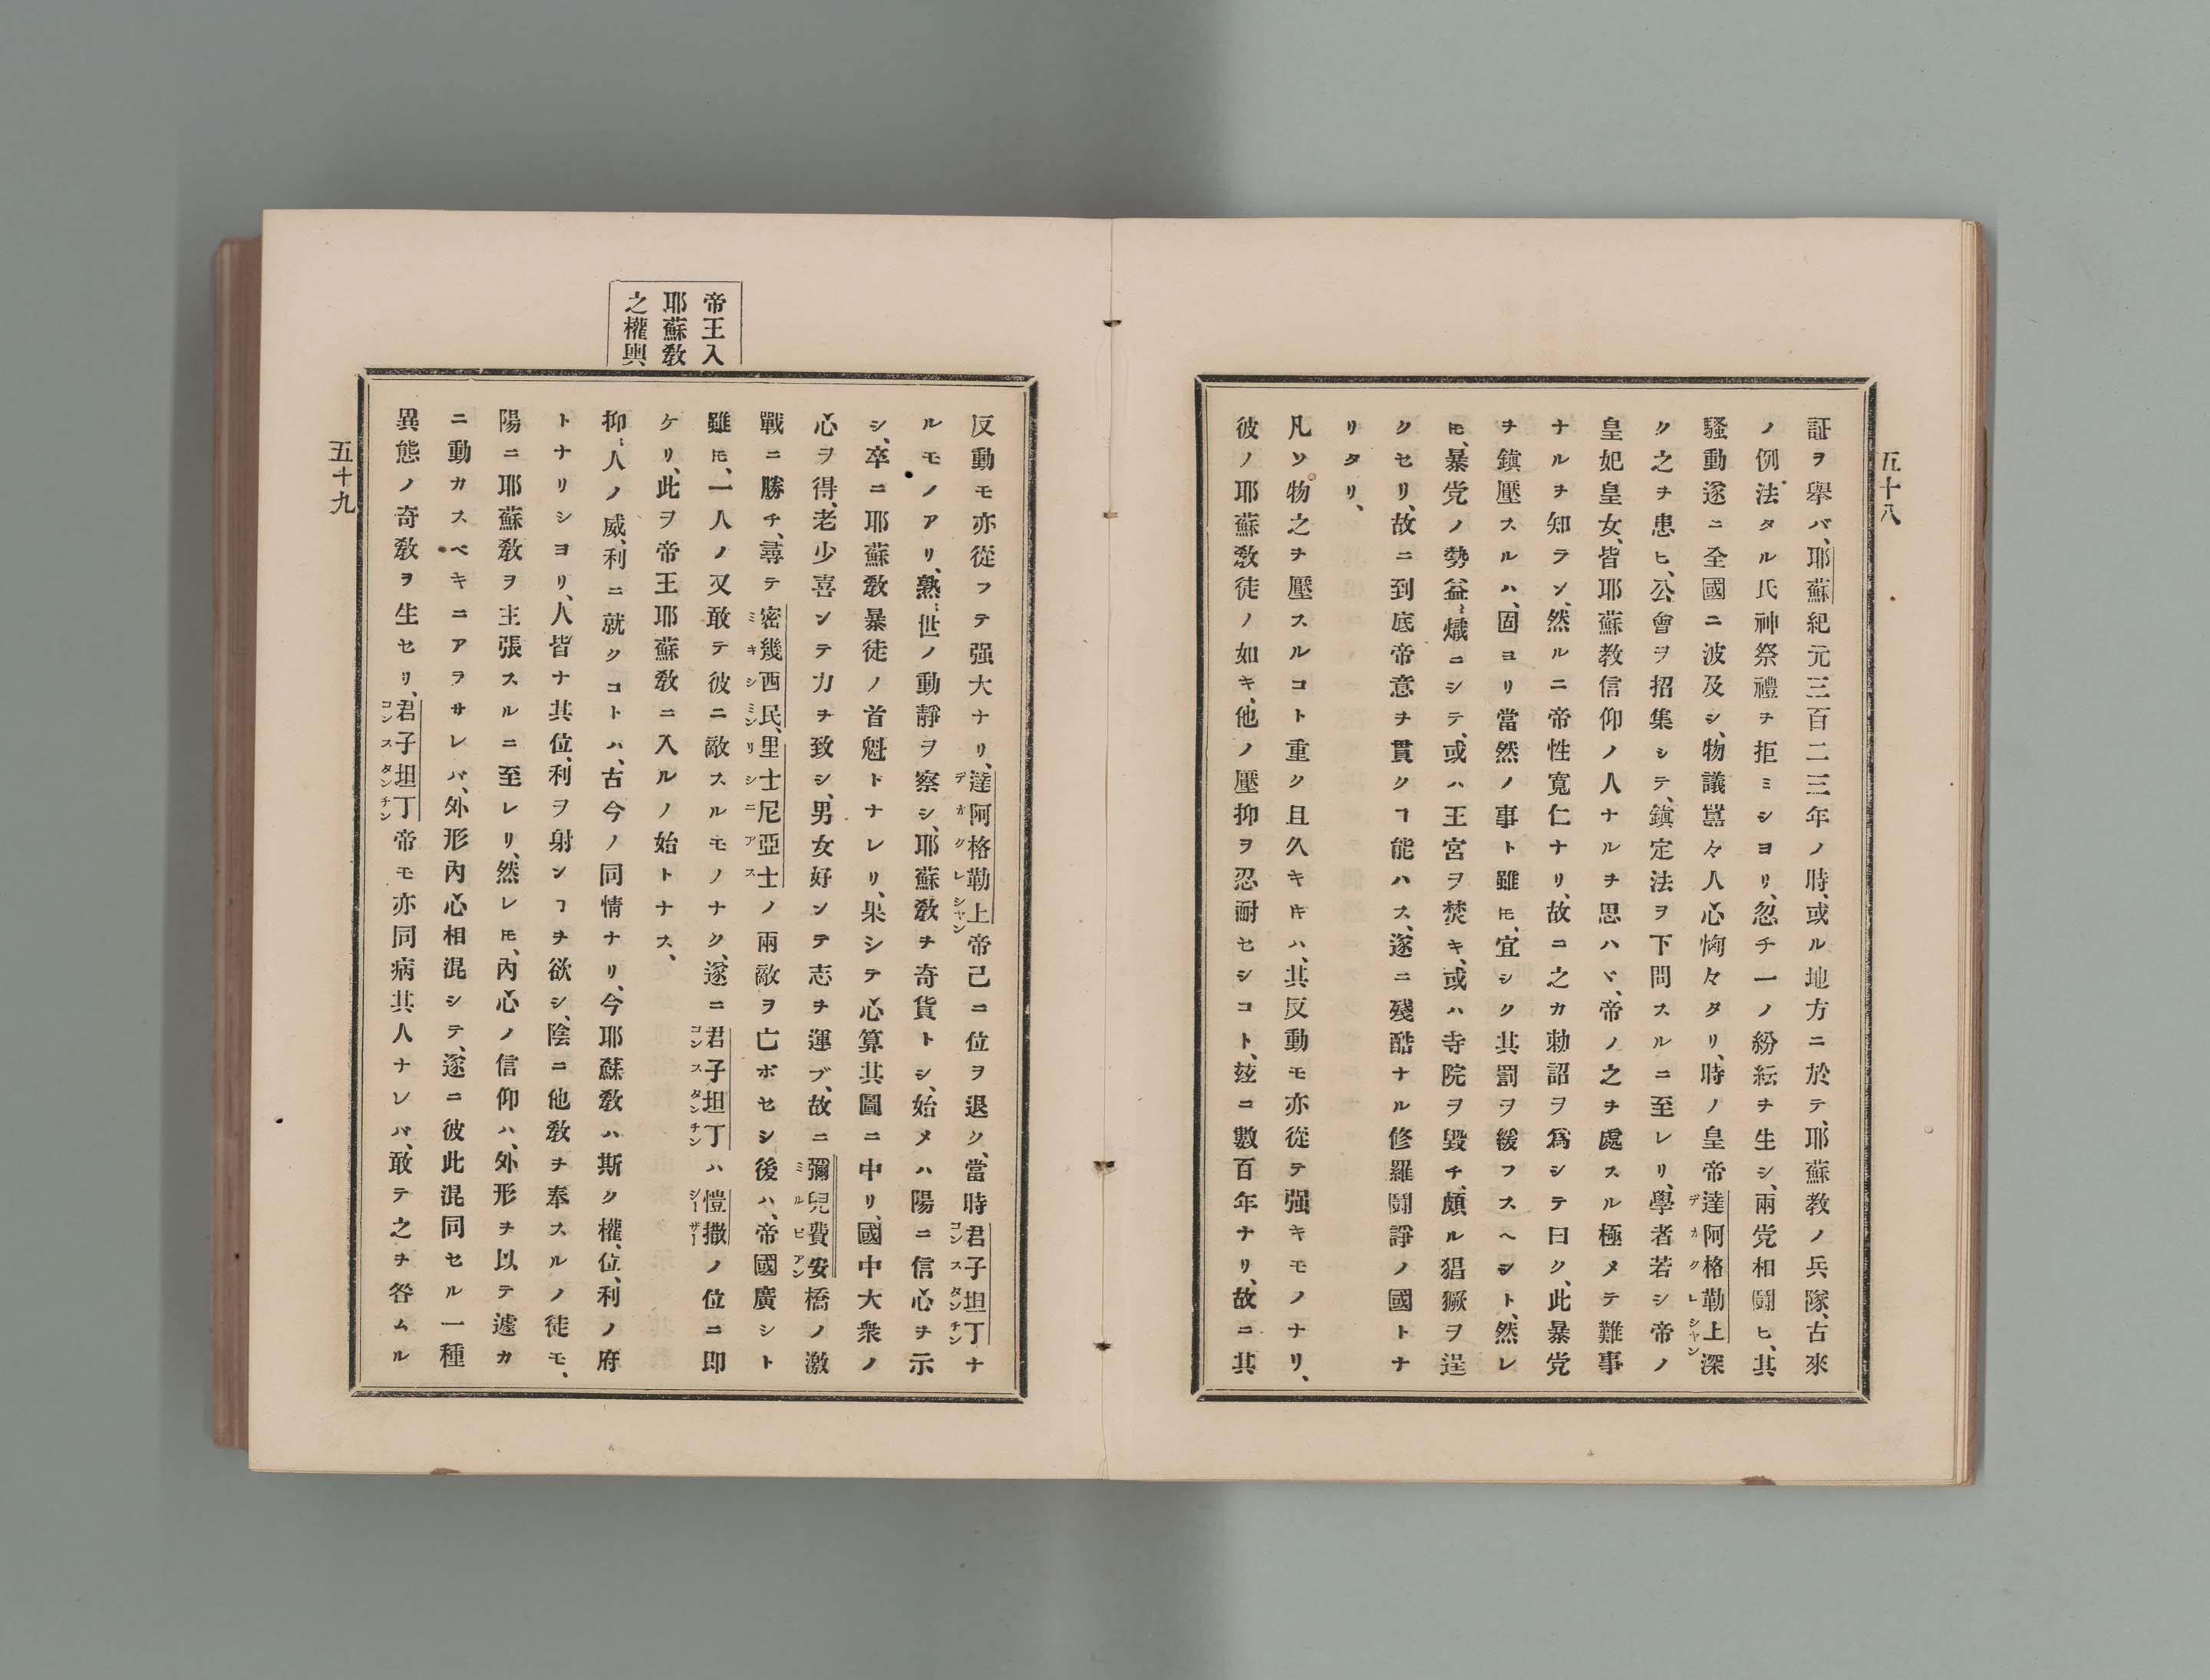 五十八
証ヲ擧バ、耶蘇紀元三百二三年ノ時、或ル地方ニ於テ、耶蘇教ノ兵隊、古來
ノ例法タル氏神祭禮ヲ拒ミシヨリ、忽チ一ノ紛紜ヲ生シ、兩党相鬪ヒ、其
騷動遂ニ全國ニ波及シ、物議囂々人心恟々タリ、時ノ皇帝達阿格勒上深
デカクレシヤン
ク之ヲ患ヒ、公會ヲ招集シテ、鎮定法ヲ下問スルニ至レリ、學者若シ帝ノ
皇妃皇女、皆耶蘇教信仰ノ人ナルヲ思ハヾ、帝ノ之ヲ處スル極メテ難事
ナルヲ知ラン、然ルニ帝性寬仁ナリ、故ニ之カ勅詔ヲ爲シテ曰ク、此暴党
ヲ鎮壓スルハ、固ヨリ當然ノ事ト雖ㇳモ、宜シク其罰ヲ緩フスヘシト、然レ
ㇳモ、暴党ノ勢益〻熾ニシテ、或ハ王宮ヲ焚キ、或ハ寺院ヲ毀チ、頗ル猖獗ヲ逞
クセリ、故ニ到底帝意ヲ貫クヿ能ハス、遂ニ殘酷ナル修羅鬪諍ノ國トナ
リタリ、
凡ソ物之ヲ壓スルコト重ク且久キキハ、其反動モ亦從テ强キモノナリ、
彼ノ耶蘇敎徒ノ如キ、他ノ壓抑ヲ忍耐セシコト、玆ニ數百年ナリ、故ニ其
帝王入
耶蘇敎
之權輿
反動モ亦從フテ强大ナリ、達阿格勒上帝己ニ位ヲ退ク、當時君子坦丁ナ
デカクレシヤン
コンスタンチン
ルモノアリ、熟〻世ノ動靜ヲ察シ、耶蘇敎ヲ奇貨トシ、始メハ陽ニ信心ヲ示
シ、卒ニ耶蘇敎暴徒ノ首魁トナレリ、果シテ心算其圖ニ中リ、國中大衆ノ
心ヲ得、老少喜ンテ力ヲ致シ、男女好ンテ志ヲ運ブ、故ニ彌兒費安橋ノ激
ミルビアン
戰ニ勝チ、尋テ密幾西民、里士尼亞士ノ兩敵ヲ亡ボセシ後ハ、帝國廣シト
ミキシミン
リシニアス
雖ㇳモ、一人ノ又敢テ彼ニ敵スルモノナク、遂ニ君子坦丁ハ愷撒ノ位ニ即
コンスタンチン
シーザー
ケリ、此ヲ帝王耶蘇敎ニ入ルノ始トナス、
抑〻人ノ威、利ニ就クコトハ、古今ノ同情ナリ、今耶蘇敎ハ斯ク權、位、利ノ府
トナリシヨリ、人皆ナ其位、利ヲ射ンヿヲ欲シ、陰ニ他敎ヲ奉スルノ徒モ、
陽ニ耶蘇敎ヲ主張スルニ至レリ、然レㇳモ、內心ノ信仰ハ、外形ヲ以テ遽カ
ニ動カスベキニアラサレバ、外形內心相混シテ、遂ニ彼此混同セル一種
異態ノ奇敎ヲ生セリ、君子坦丁帝モ亦同病其人ナレバ、敢テ之ヲ咎ムル
コンスタンチン
五十九